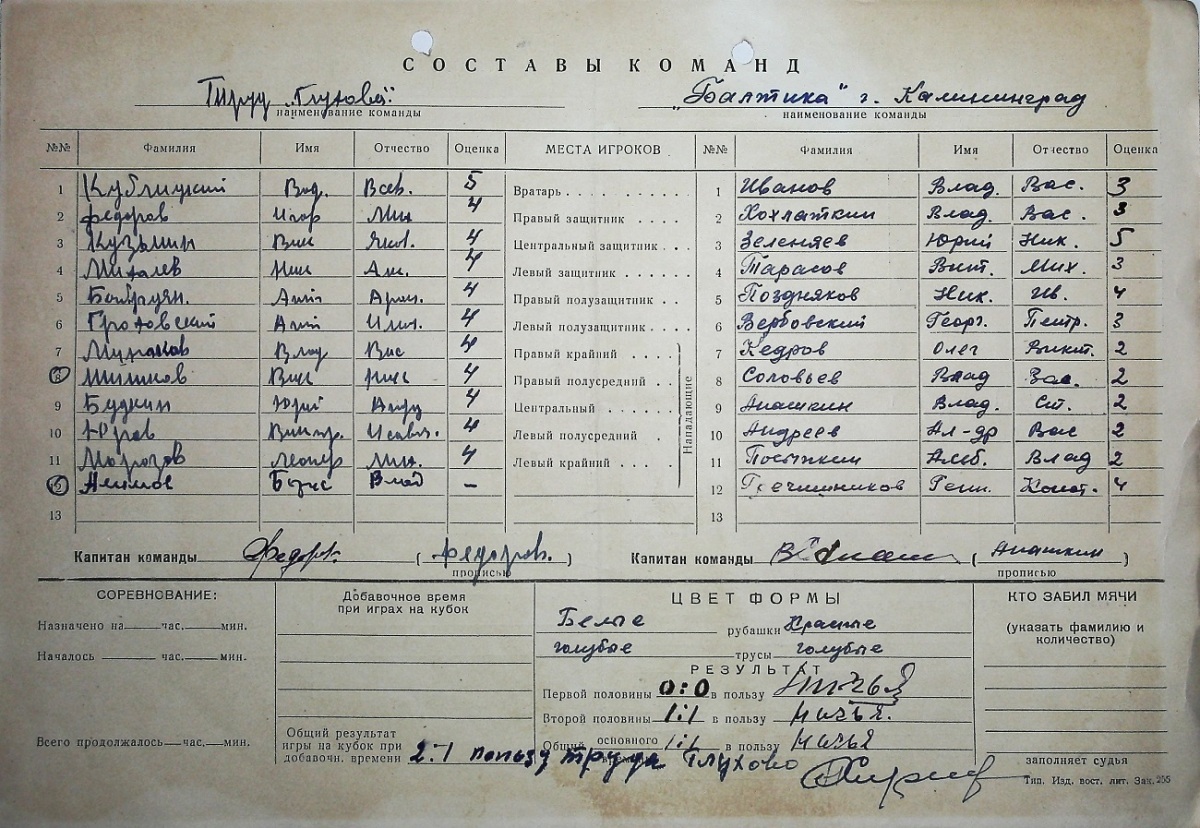 СОСТАВЫ КОМАНД
Труд "Глухово" "Балтика" г. Калининград
наименование команды наименование команды
№№ Фамилия Имя Отчество Оценка МЕСТА ИГРОКОВ №№ Фамилия Имя Отчество Оценка
1 Кублицкий Всев. 5 Вратарь 1 Иванов Влад. Вас. 3
2 Федоров Игор Мих 4 Правый защитник 2 Хохлаткин Влад. Вас. 3
3 Кузьмин Вик Як. 4 Центральный защитник 3 Зеленяев Юрий Ник. 5
4 Михалев Ник 4 Левый защитник 4 Тарасов Вит. Мих. 3
5 4 Правый полузащитник 5 Поздняков Ник. Ив. 4
6 Гротовский 4 Левый полузащитник 6 Вербовский Георг. Петр. 3
7 Влад Вас 4 Правый крайний 7 Кедров Олег Викт. 2
8 Шишков Вик Ник 4 Правый полусредний 8 Соловьев Влад Вас. 2
9 Будкин Юрий Андр 4 Центральный 9 Анашкин Влад. Ст. 2
10 Юров Виктор. 4 Левый полусредний 10 Андреев Ал-др Вас 2
11 Морозов Леонир Мих. 4 Левый крайний 11 Постыкин Влад 2
12 Акимов Влад – 12 Гречишников Генн. Конст. 4
13 13
Нападающие
Капитан команды Федоров. (Федоров.) Капитан команды (Анашкин)
прописью прописью
СОРЕВНОВАНИЕ: Добавочное время при играх на кубок ЦВЕТ ФОРМЫ КТО ЗАБИЛ МЯЧИ
Белые рубашки Красные (указать фамилию и количество)
Назначено на час. мин.
голубые трусы голубые
Началось час. мин.
РЕЗУЛЬТАТ
Первой половины 0:0 в пользу Ничья
Второй половины 1:1 в пользу ничья.
Всего продолжалось час. мин. Общий результат игры на кубок при добавочн. времени Общий основного времени 1:1 в пользу ничья
2:1 в пользу труда Глухово
заполняет судья
Тип. Изд. вост. лит. Зак. 255